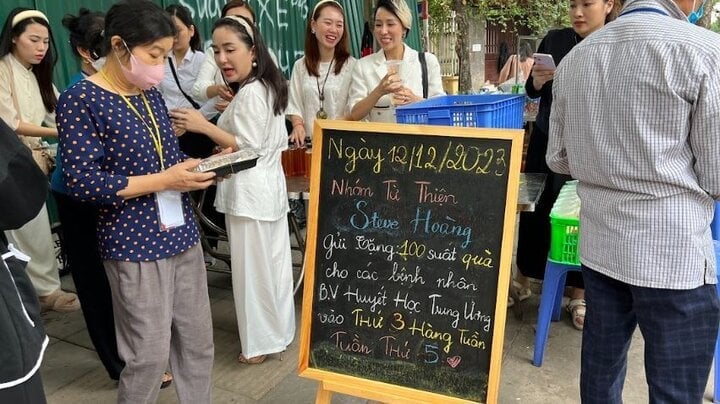 Ngày 12/12/2023
Nhóm Từ Thiện
Steve Hoàng
Gửi tặng: 100 suất quà
cho các bệnh nhân
B.V Huyết Học Trung Ương
vào Thứ 3 Hàng Tuần
Tuần Thứ 5